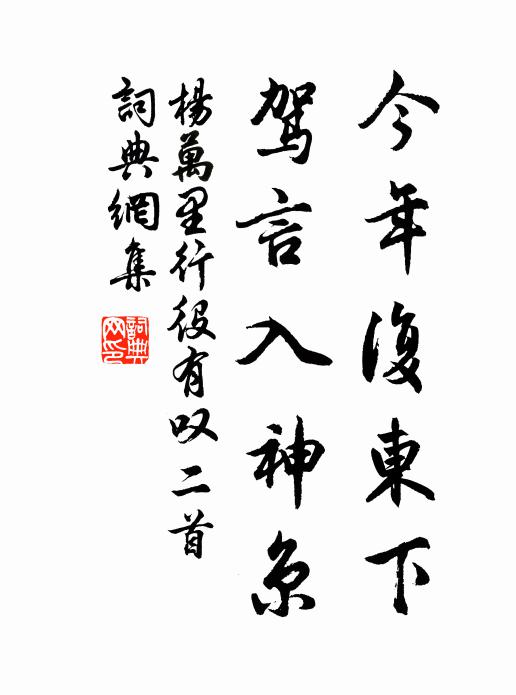 今年復東下
駕言入神京
楊萬里行役有叹二首
詞典網集
詞典网印